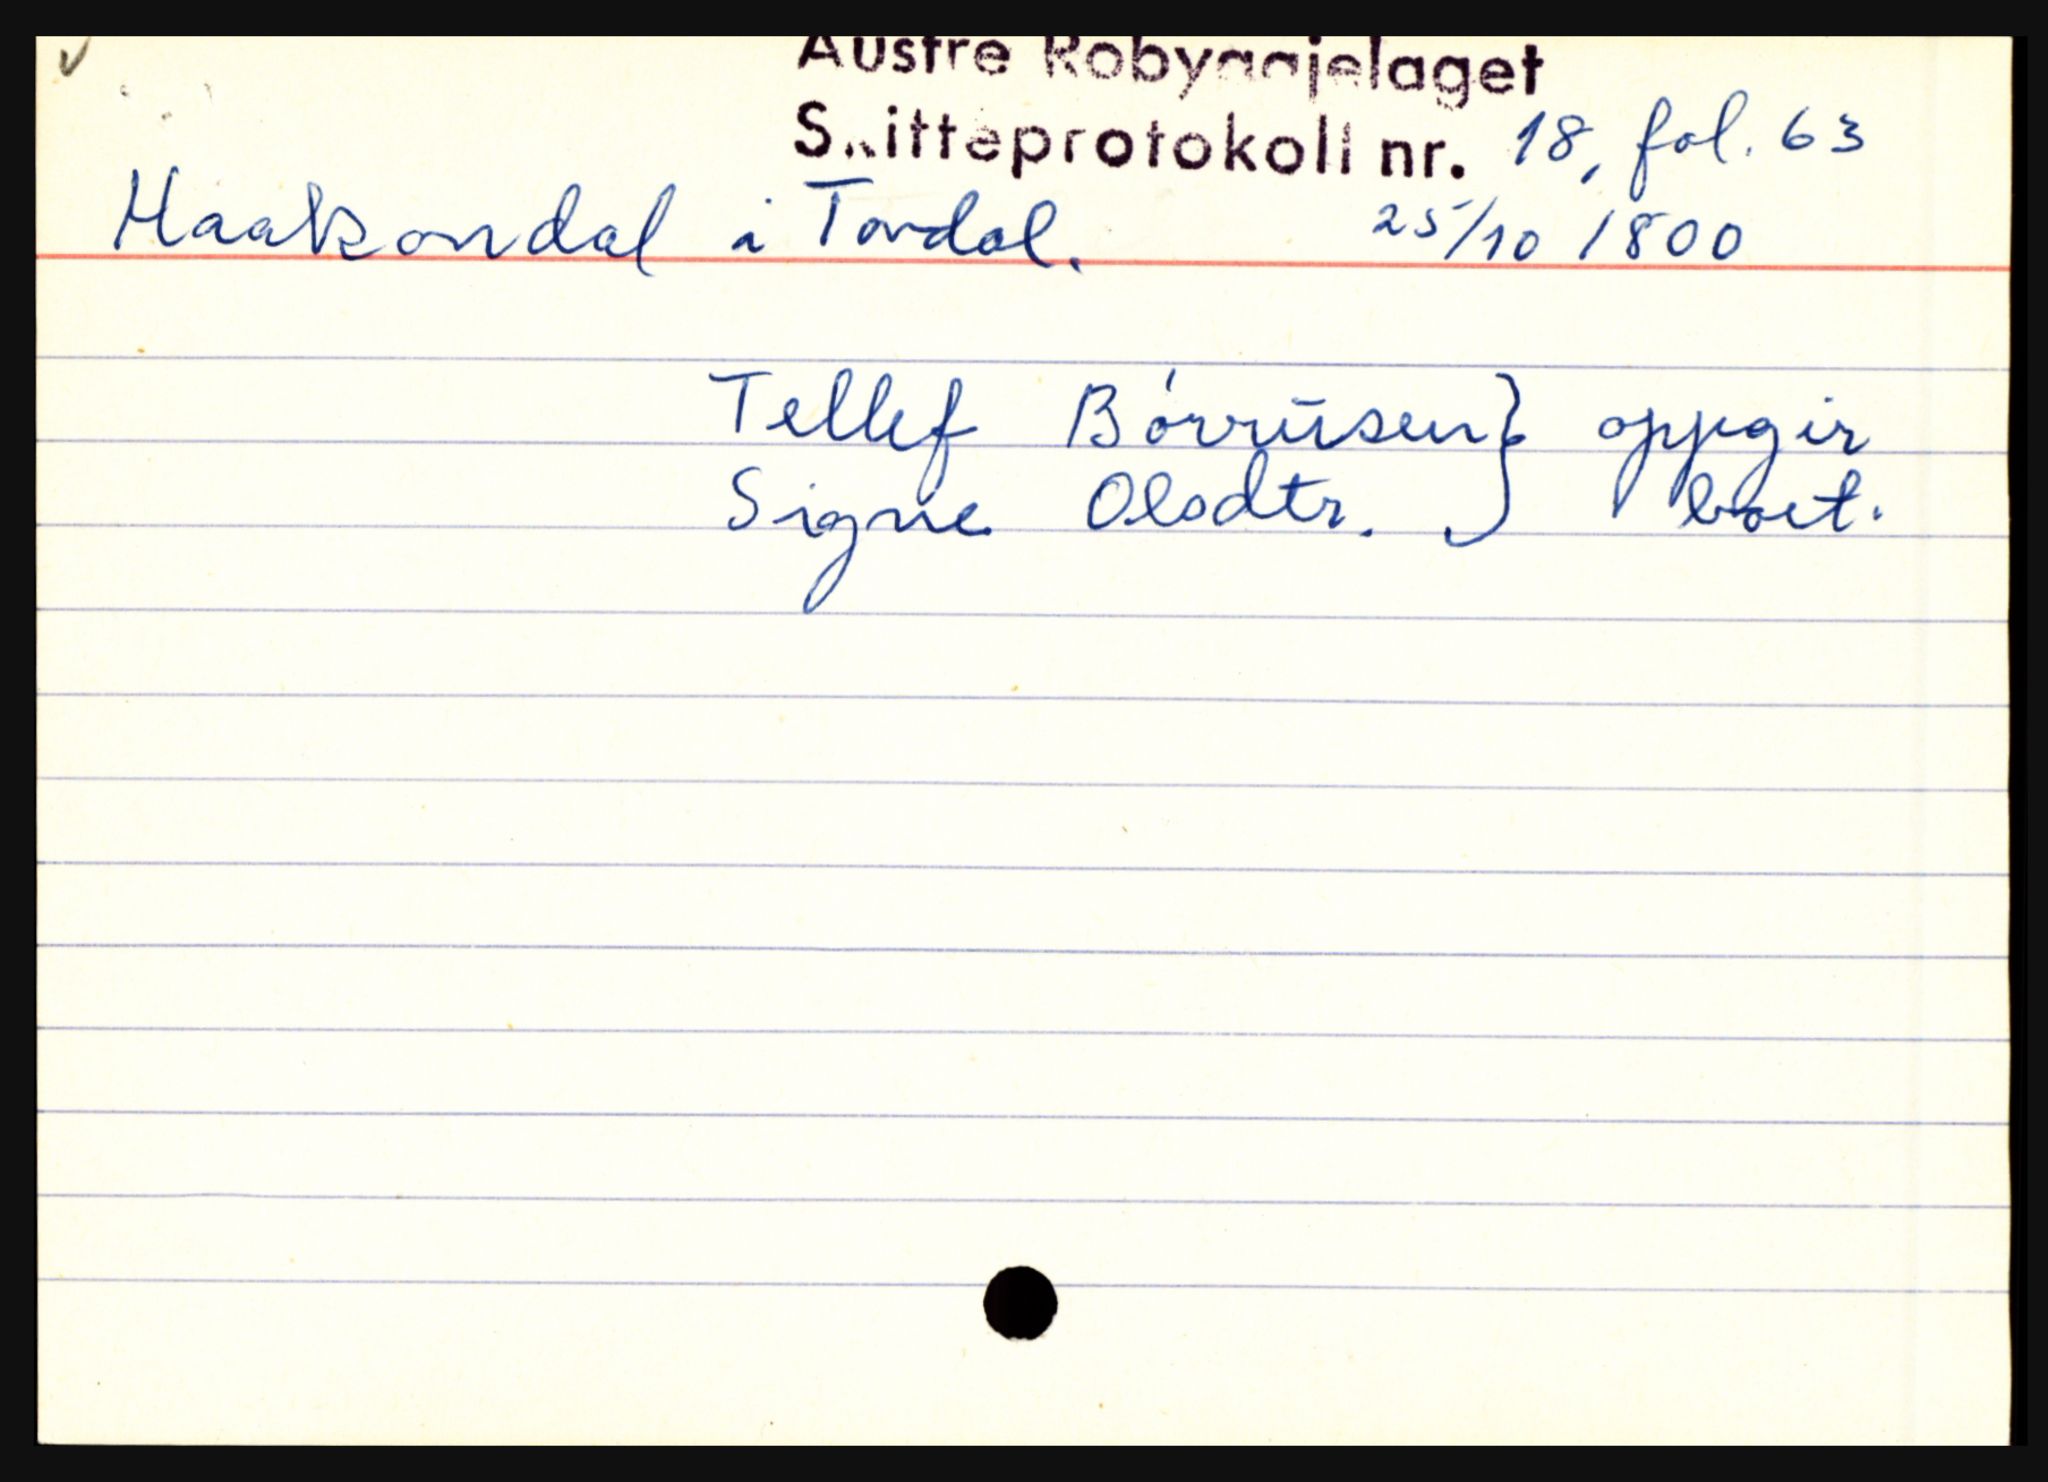 Austre Robyggjelaget
Skifteprotokoll nr. 18, fol. 63
Haakondal i Tovdal. 25/10 1800
Tellef } oppgir
Signe Olsdtr. } boet.